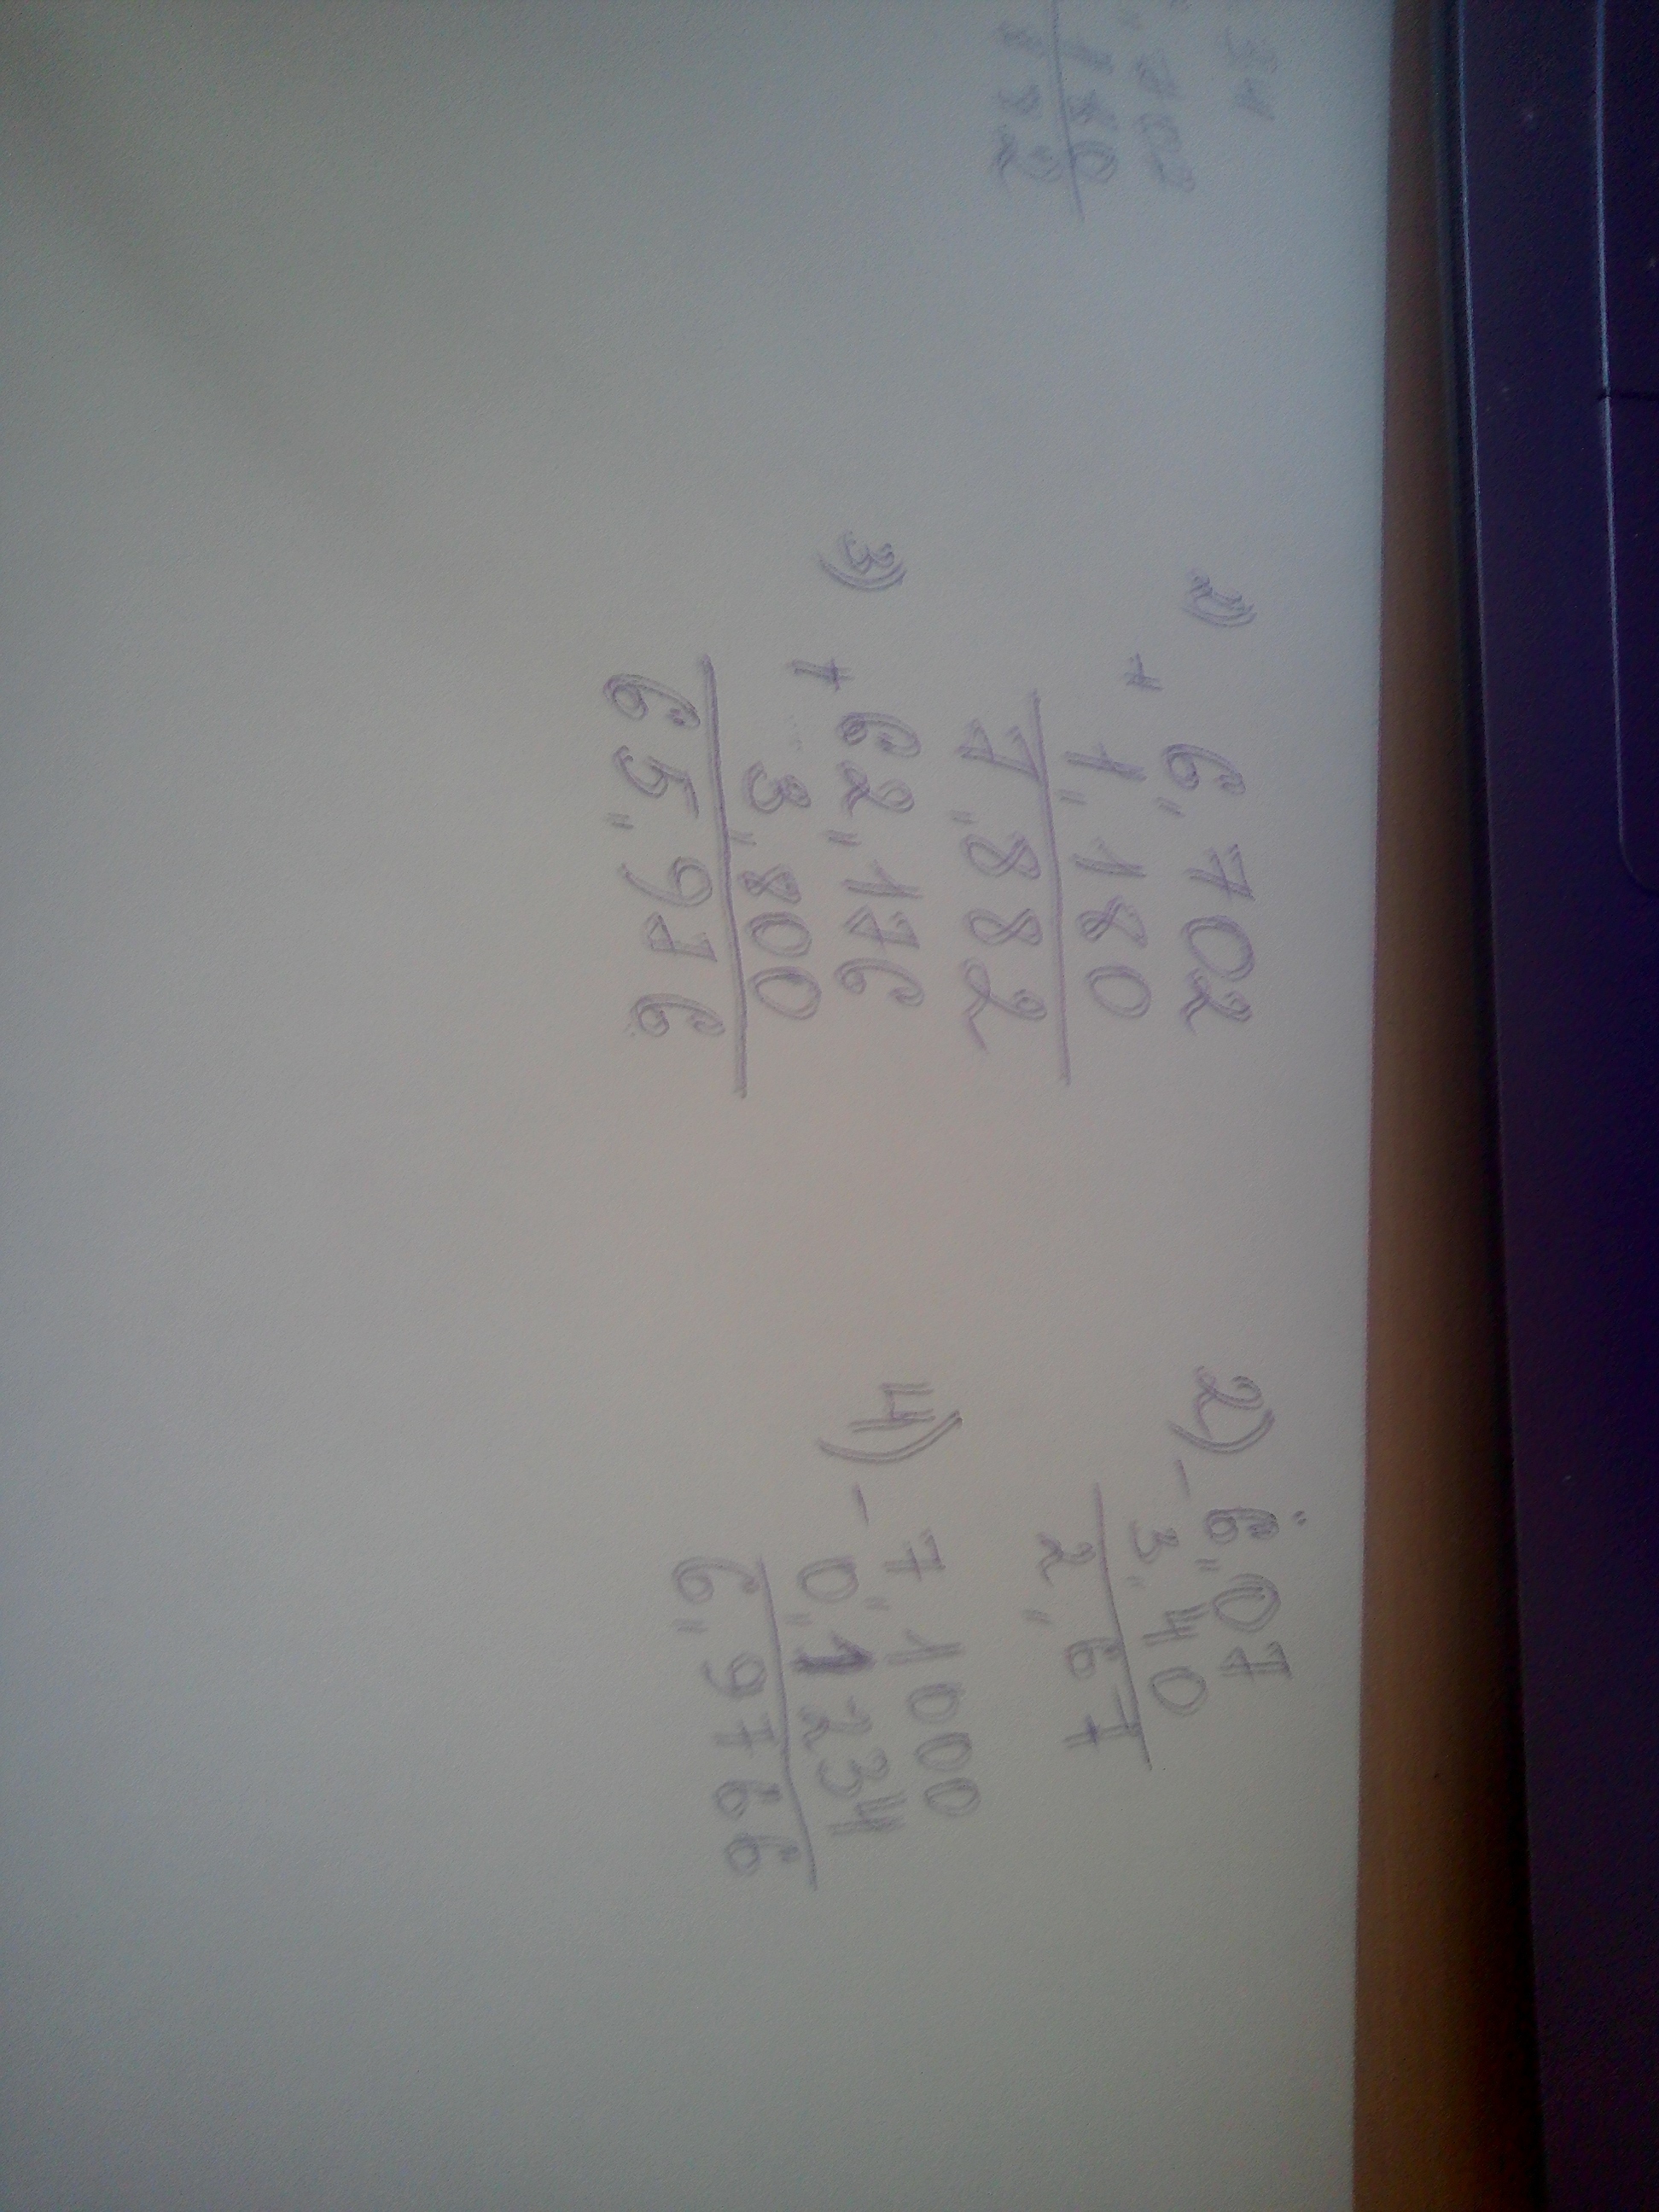 1)
6,702
+
1,180
7,882
2)
-
6,07
3,40
2,67
3)
+
62,176
3,800
65,976
4)
-
7,1000
0,1234
6,9766